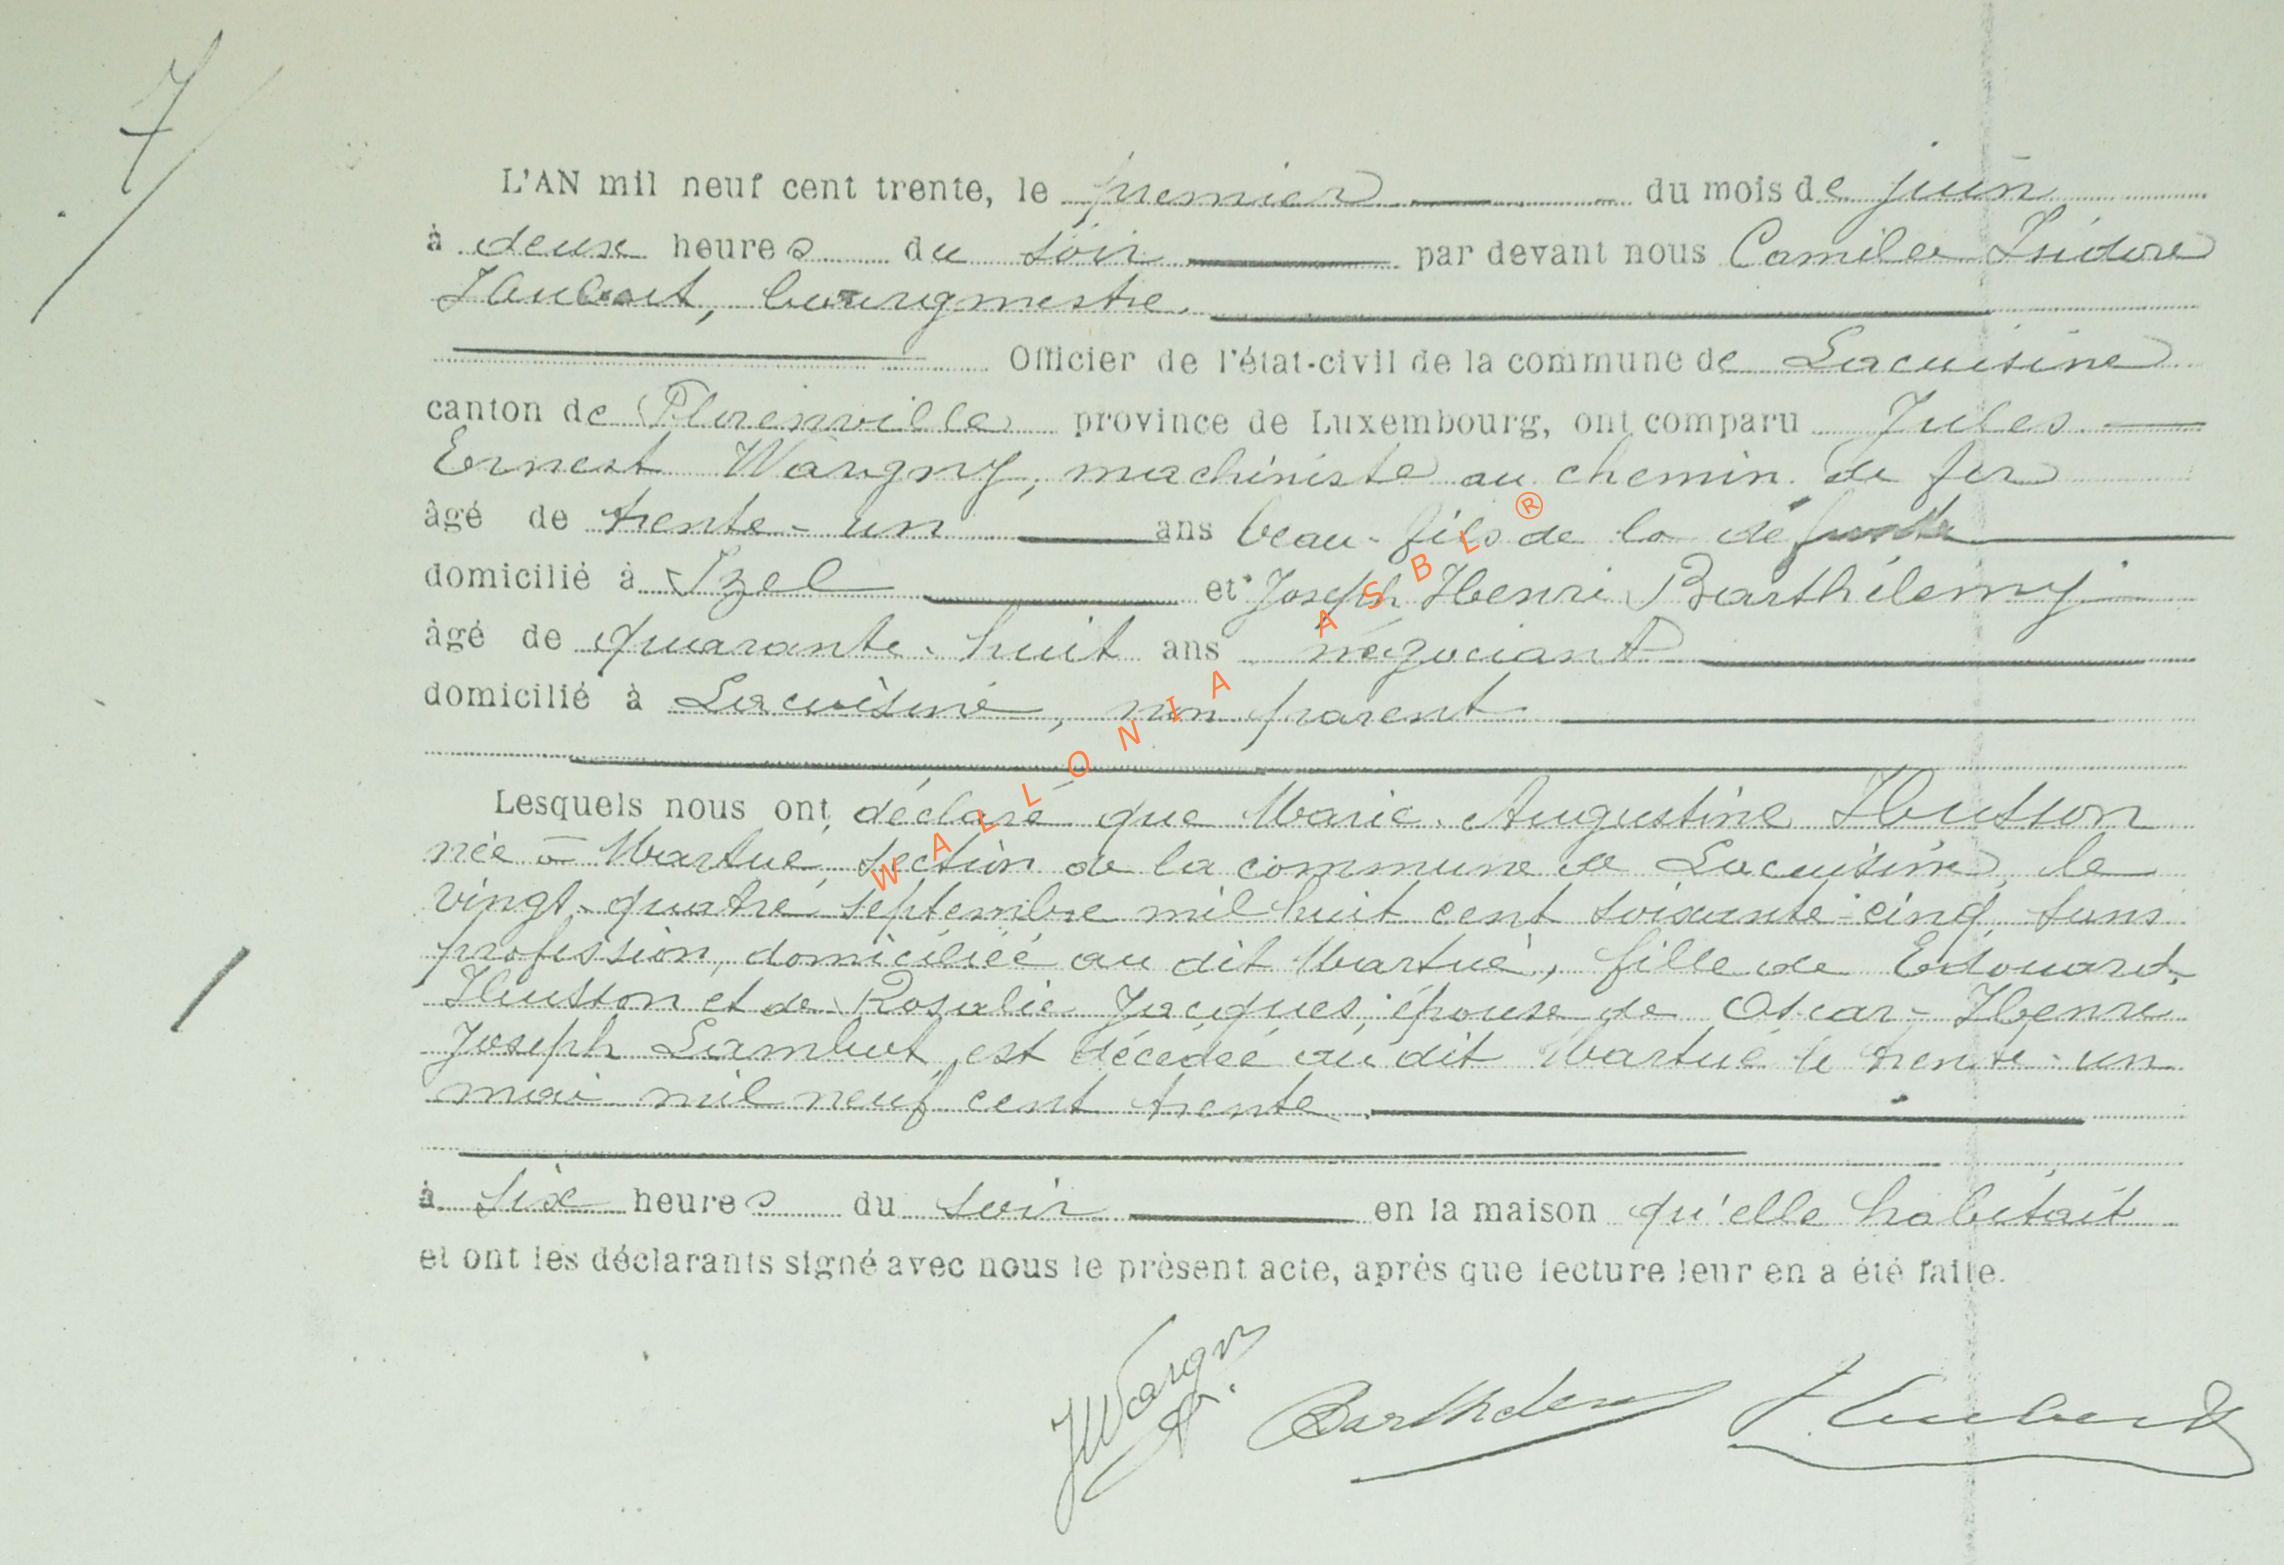 7
L'AN mil neuf cent trente, le premier du mois de juin
à deux heures du soir par devant nous Camille Isidore
Hubert, bourgmestre.
Officier de l'état-civil de la commune de Lacuisine
canton de Florenville province de Luxembourg, ont comparu Jules
Ernest Wargny, machiniste au chemin de fer
âgé de trente-un ans beau-fils de la défunte
domicilié à Izel et Joseph Henri Barthélemy
âgé de quarante-huit ans négociant
domicilié à Lacuisine, non parent
Lesquels nous ont déclaré que Marie-Augustine Husson
née à Martué, section de la commune de Lacuisine, le
vingt-quatre septembre mil huit cent soixante-cinq, sans
profession, domiciliée au dit Martué, fille de Edouard
Husson et de Rosalie Jacques, épouse de Oscar-Henri
Joseph Lambot, est décédée au dit Martué le trente-un
mai mil neuf cent trente.
à six heures du soir en la maison qu'elle habitait
et ont les déclarants signé avec nous le présent acte, après que lecture leur en a été faite.
JWargny Barthélemy Hubert
WALLONIA ASBL ®